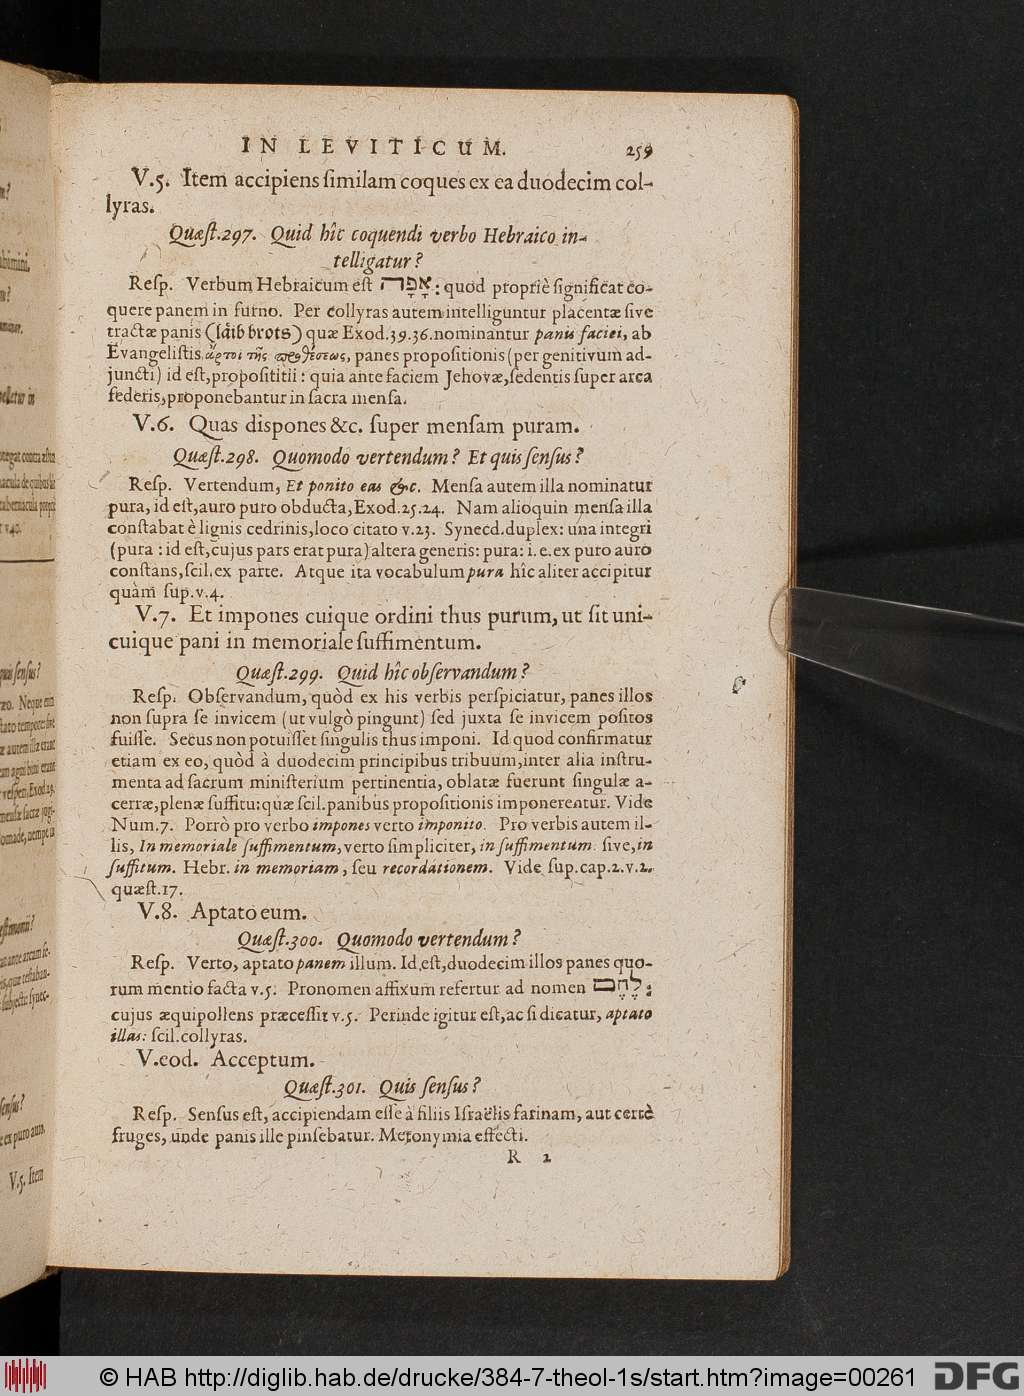 IN LEVITICUM. 259
V.5. Item accipiens ſimilam coques ex ea duodecim col-
lyras.
Quæſt.297. Quid hîc coquendi verbo Hebraico in-
telligatur?
Reſp. Verbum Hebraicum eſt אָפָה: quod propriè ſignificat co-
quere panem in furno. Per collyras autem intelliguntur placentæ ſive
tractæ panis (läib brots) quæ Exod.39.36. nominantur panis faciei, ab
Evangeliſtis ἄρτοι τῆς προθέσεως, panes propoſitionis (per genitivum ad-
juncti) id eſt, propoſititii: quia ante faciem Jehovæ, ſedentis ſuper arca
fœderis, proponebantur in ſacra menſa.
V.6. Quas diſpones &c. ſuper menſam puram.
Quæſt.298. Quomodo vertendum? Et quis ſenſus?
Reſp. Vertendum, Et ponito eas &c. Menſa autem illa nominatur
pura, id eſt, auro puro obducta, Exod.25.24. Nam alioquin menſa illa
conſtabat è lignis cedrinis, loco citato v.23. Synecd.duplex: una integri
(pura: id eſt, cujus pars erat pura) altera generis: pura: i.e. ex puro auro
conſtans, ſcil. ex parte. Atque ita vocabulum pura hîc aliter accipitur
quàm ſup.v.4.
V.7. Et impones cuique ordini thus purum, ut ſit uni-
cuique pani in memoriale ſuffimentum.
Quæſt.299. Quid hîc obſervandum?
Reſp. Obſervandum, quòd ex his verbis perſpiciatur, panes illos
non ſupra ſe invicem (ut vulgò pingunt) ſed juxta ſe invicem poſitos
fuiſſe. Secus non potuiſſet ſingulis thus imponi. Id quod confirmatur
etiam ex eo, quòd à duodecim principibus tribuum, inter alia inſtru-
menta ad ſacrum miniſterium pertinentia, oblatæ fuerunt ſingulæ a-
cerræ, plenæ ſuffitu: quæ ſcil. panibus propoſitionis imponerentur. Vide
Num.7. Porrò pro verbo impones verto imponito. Pro verbis autem il-
lis, In memoriale ſuffimentum, verto ſimpliciter, in ſuffimentum: ſive, in
ſuffitum. Hebr. in memoriam, ſeu recordationem. Vide ſup.cap.2.v.2.
quæſt.17.
V.8. Aptato eum.
Quæſt.300. Quomodo vertendum?
Reſp. Verto, aptato panem illum. Id eſt, duodecim illos panes quo-
rum mentio facta v.5. Pronomen affixum refertur ad nomen לֶחֶם:
cujus æquipollens præceſſit v.5. Perinde igitur eſt, ac ſi dicatur, aptato
illas: ſcil. collyras.
V.eod. Acceptum.
Quæſt.301. Quis ſenſus?
Reſp. Senſus eſt, accipiendam eſſe à filiis Iſraëlis farinam, aut certè
fruges, unde panis ille pinſebatur. Metonymia effecti.
R 2
© HAB http://diglib.hab.de/drucke/384-7-theol-1s/start.htm?image=00261
DFG